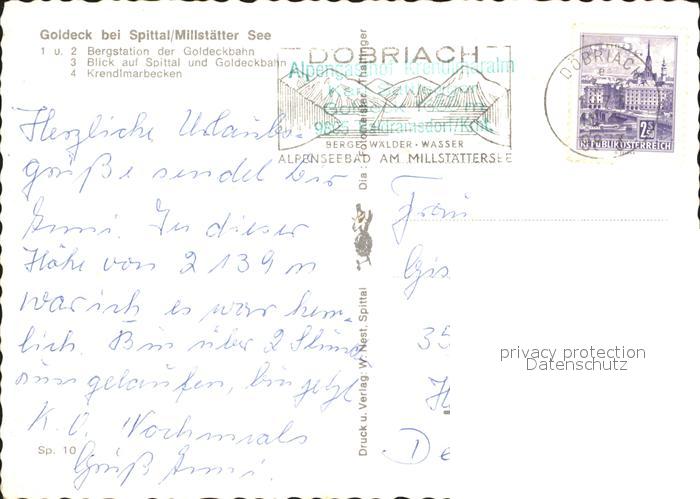 Goldeck bei Spittal/Millstätter See
1 u. 2 Bergstation der Goldeckbahn
3 Blick auf Spittal und Goldeckbahn
4 Krendlmarbecken
Herzliche Urlaubs-
grüße sendet Dir
Anni. In dieser
Höhe von 2139 m
war ich es war herr-
lich. Bin über 2 Stund
gelaufen, bin jetzt
K.O. Nochmals
Gruß Anni.
Sp. 10
Druck u. Verlag: W. Nest, Spittal
Dia: Fotomeister
DÖBRIACH
BERGE · WÄLDER · WASSER
ALPENSEEBAD AM MILLSTÄTTERSEE
Alpengasthof Krendlmaralm
DÖBRIACH
2.50
REPUBLIK ÖSTERREICH
Frau
Gis
35
De
privacy protection
Datenschutz